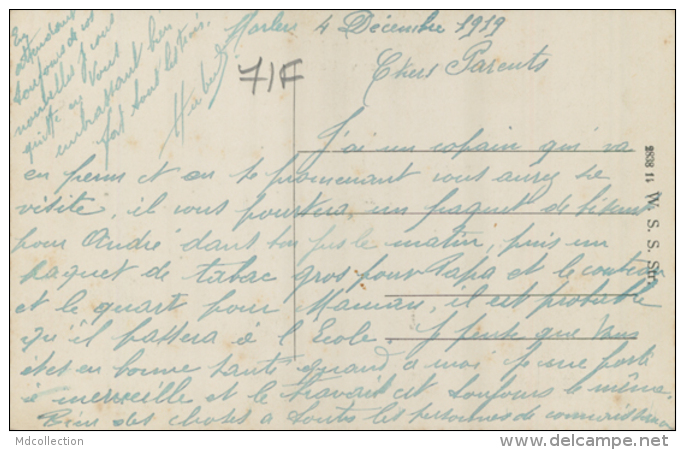 4 Décembre 1919
Chers Parents
J'ai un copain qui va
en perm et en se promenant vous aurez sa
visite, il vous portera un paquet de
pour André dans le matin, puis un
paquet de tabac gros pour Papa et le couteau
et le quart pour Maman, il est probable
qu'il passera à l'Ecole. Je pense que vous
êtes en bonne santé quand à moi je me porte
à merveille et le travail est toujours le même.
Bien des choses à toutes les personnes de connaissance
En
attendant
toujours de vos
nouvelles je vous
quitte en vous
embrassant bien
fort tous les trois.
71F
2838 11 W. S. S. Str.
Mdcollection
http://www.delcampe.net